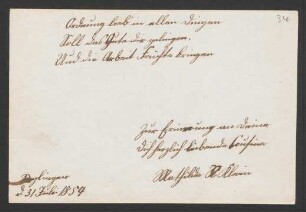 Ordnung lieb in allen Dingen
Soll das Gute dir gelingen.
Und die Arbeit Früchte bringen
Zur Erinnerung an Deine
Dich herzlich liebende Cousine
Mathilde Klein
d 31 Juli 1854